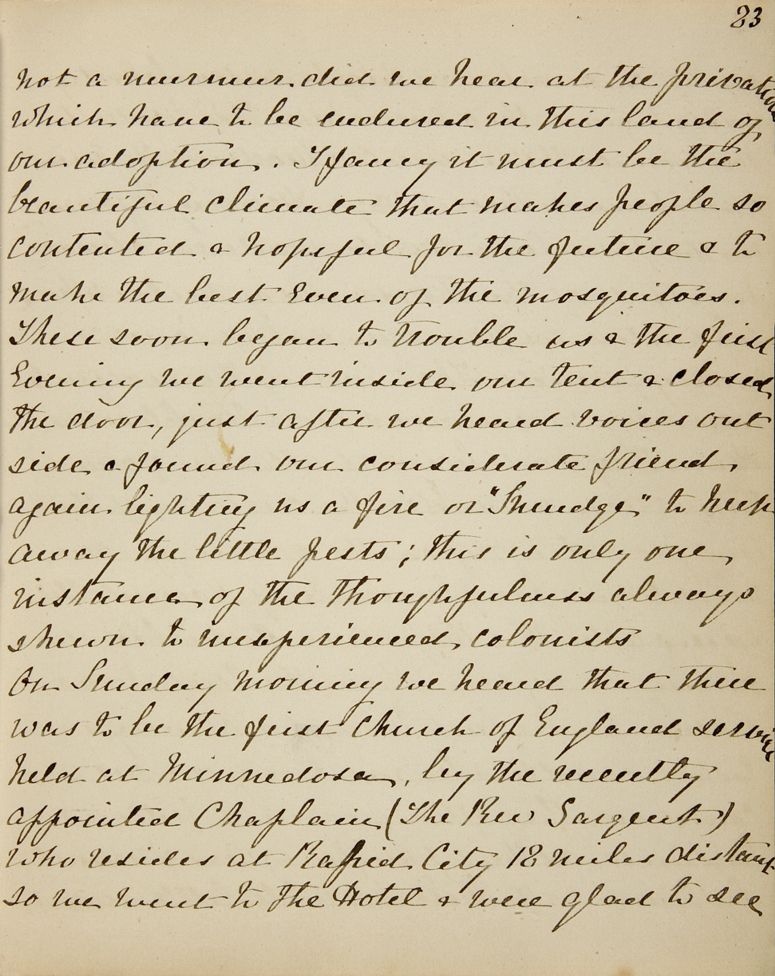 23
not a murmur did we hear at the privations
which have to be endured in this land of
our adoption. I fancy it must be the
beautiful climate that makes people so
contented & hopeful for the future & to
make the best even of the mosquitoes.
These soon began to trouble us & the first
Evening we went inside our tent & closed
the door, just after we heard voices out
side & found our considerate friend
again lighting us a fire or "Smudge" to keep
away the little pests; this is only one
instance of the thoughtfulness always
shewn to inexperienced colonists
On Sunday morning we heard that there
was to be the first Church of England service
held at Minnedosa, by the recently
appointed Chaplain (The Rev Sargent)
who resides at Rapid City 18 miles distant
so we went to the Hotel & were glad to see